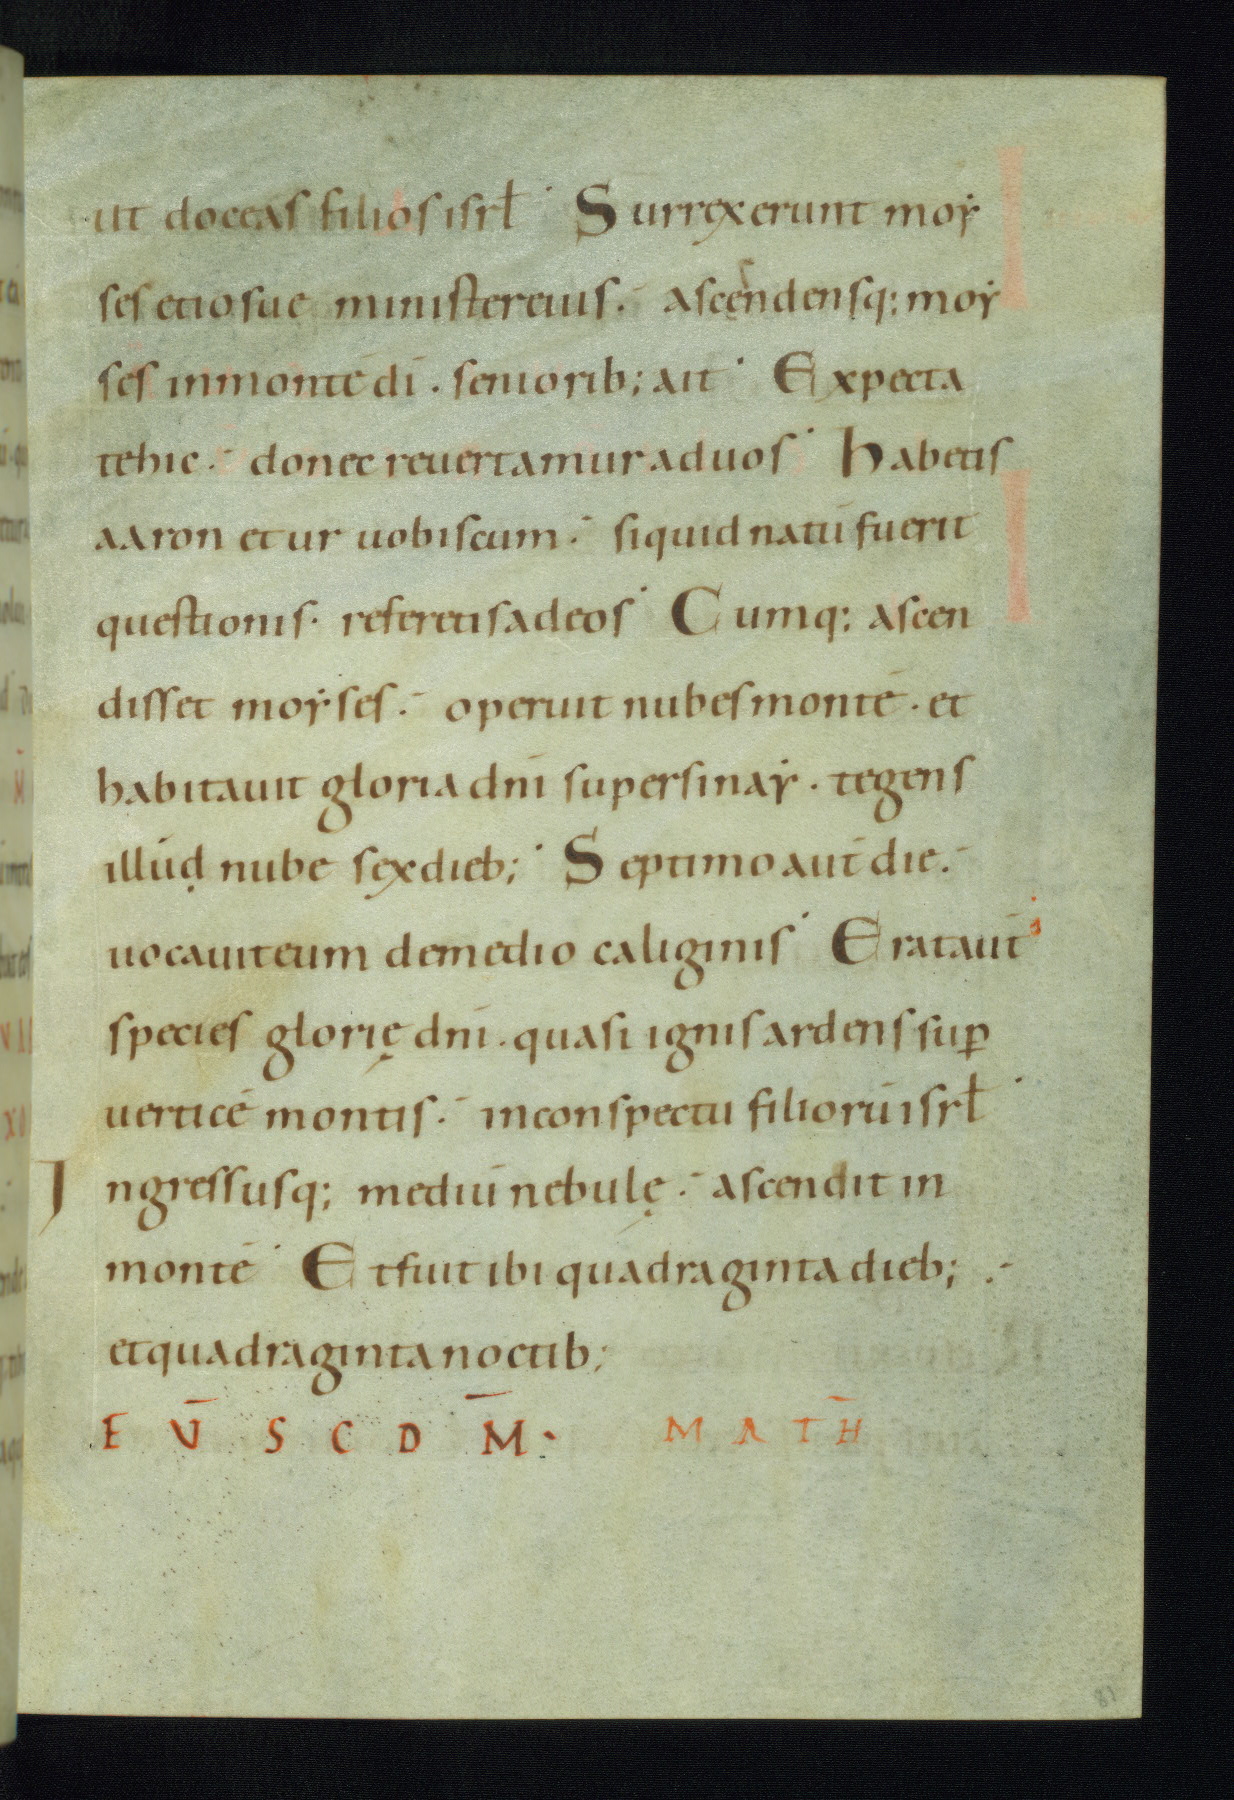 ut doceas filios isrł· Surrexerunt moẏ
ses et iosue minister eius. ascendensq; moẏ
ses in montē dī. seniorib; ait· Expecta
te hic. donec reuertamur ad uos· Habetis
aaron et ur uobiscum. siquid natū fuerit
questionis. referetis ad eos· Cumq; ascen
disset moẏses. operuit nubes montē. et
habitauit gloria dnī super sinaẏ. tegens
illud nube sex dieb;· Septimo aut̄ die.
uocauit eum de medio caliginis· Erat aut̄
species glorię dnī. quasi ignis ardens suꝑ
uerticē montis. in conspectu filiorū isrł·
Ingressusq; mediū nebulę. ascendit in
montē· Et fuit ibi quadraginta dieb;.
et quadraginta noctib;
E V̄ S C D M̄. MATH̄
81